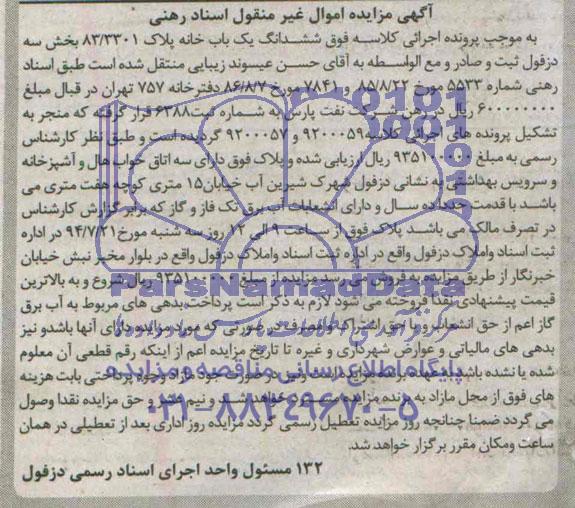 آگهی مزایده اموال غیر منقول اسناد رهنی
به موجب پرونده اجرائی کلاسه فوق ششدانگ یک باب خانه پلاک ۸۳/۳۳۰۱ بخش سه
دزفول ثبت و صادر و مع الواسطه به آقای حسن عیسوند زیبایی منتقل شده است طبق اسناد
رهنی شماره ۵۵۳۳ مورخ ۸۵/۸/۲۲ و ۷۸۴۱ مورخ ۸۶/۸/۷ دفترخانه ۷۵۷ تهران در قبال مبلغ
۶۰۰۰۰۰۰۰۰ ریال در رهن شرکت نفت پارس به شماره ثبت ۶۳۸۸ قرار گرفته که منجر به
تشکیل پرونده های اجرائی کلاسه ۹۲۰۰۰۵۹ و ۹۲۰۰۰۵۷ گردیده است و طبق نظر کارشناس
رسمی به مبلغ ۹۳۵۱۰۰۰۰۰ ریال ارزیابی شده و پلاک فوق دارای سه اتاق خواب هال و آشپزخانه
و سرویس بهداشتی به نشانی دزفول شهرک شیرین آب خیابان ۱۵ متری کوچه هفت متری می
باشد با قدمت سال و دارای انشعابات آب برق تک فاز و گاز که برابر گزارش کارشناس
در تصرف مالک می باشد پلاک فوق از ساعت ۹ الی ۱۲ روز سه شنبه مورخ ۹۴/۷/۲۱ در اداره
ثبت اسناد واملاک دزفول واقع در اداره ثبت اسناد واملاک دزفول واقع در بلوار مخبر نبش خیابان
خبرنگار از طریق مزایده به فروش می رسد مزایده از مبلغ ۹۳۵۱۰۰۰۰۰ ریال شروع و به بالاترین
قیمت پیشنهادی نقدا فروخته می شود لازم به ذکر است پرداخت بدهی های مربوط به آب برق
گاز اعم از حق انشعاب و یا حق اشتراک و مصرف در صورتی که مورد مزایده دارای آنها باشد و نیز
بدهی های مالیاتی و عوارض شهرداری و غیره تا تاریخ مزایده اعم از اینکه رقم قطعی آن معلوم
شده یا نشده باشد به عهده برنده مزایده است ونیز در صورت وجود مازاد وجوه پرداختی بابت هزینه
های فوق از محل مازاد به برنده مزایده مسترد خواهد شد و نیم عشر و حق مزایده نقدا وصول
می گردد ضمنا چنانچه روز مزایده تعطیل رسمی گردد مزایده روز اداری بعد از تعطیلی در همان
ساعت ومکان مقرر برگزار خواهد شد.
۱۳۲ مسئول واحد اجرای اسناد رسمی دزفول
ParsNamadData
پایگاه اطلاع رسانی مناقصه و مزایده
۰۲۱-۸۸۳۴۹۶۷۰-۵